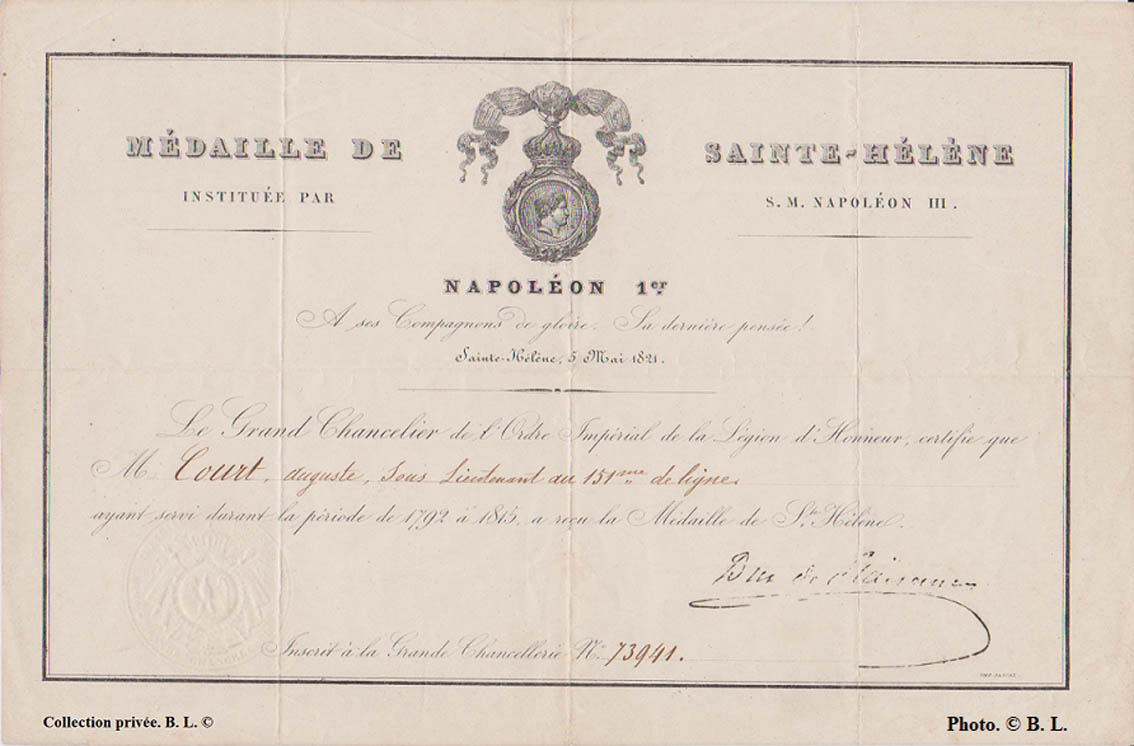 MÉDAILLE DE SAINTE-HÉLÈNE
INSTITUÉE PAR S. M. NAPOLÉON III.
NAPOLÉON 1er
A ses Compagnons de gloire. Sa dernière pensée!
Sainte-Hélène, 5 Mai 1821.
Le Grand Chancelier de l'Ordre Impérial de la Légion d'Honneur, certifie que
M. Court, auguste, Sous Lieutenant au 151me de ligne
ayant servi durant la période de 1792 à 1815, a reçu la Médaille de Ste Hélène.
Duc de Plaisance
Inscrit à la Grande Chancellerie No 73941.
Collection privée. B. L. ©
Photo. © B. L.